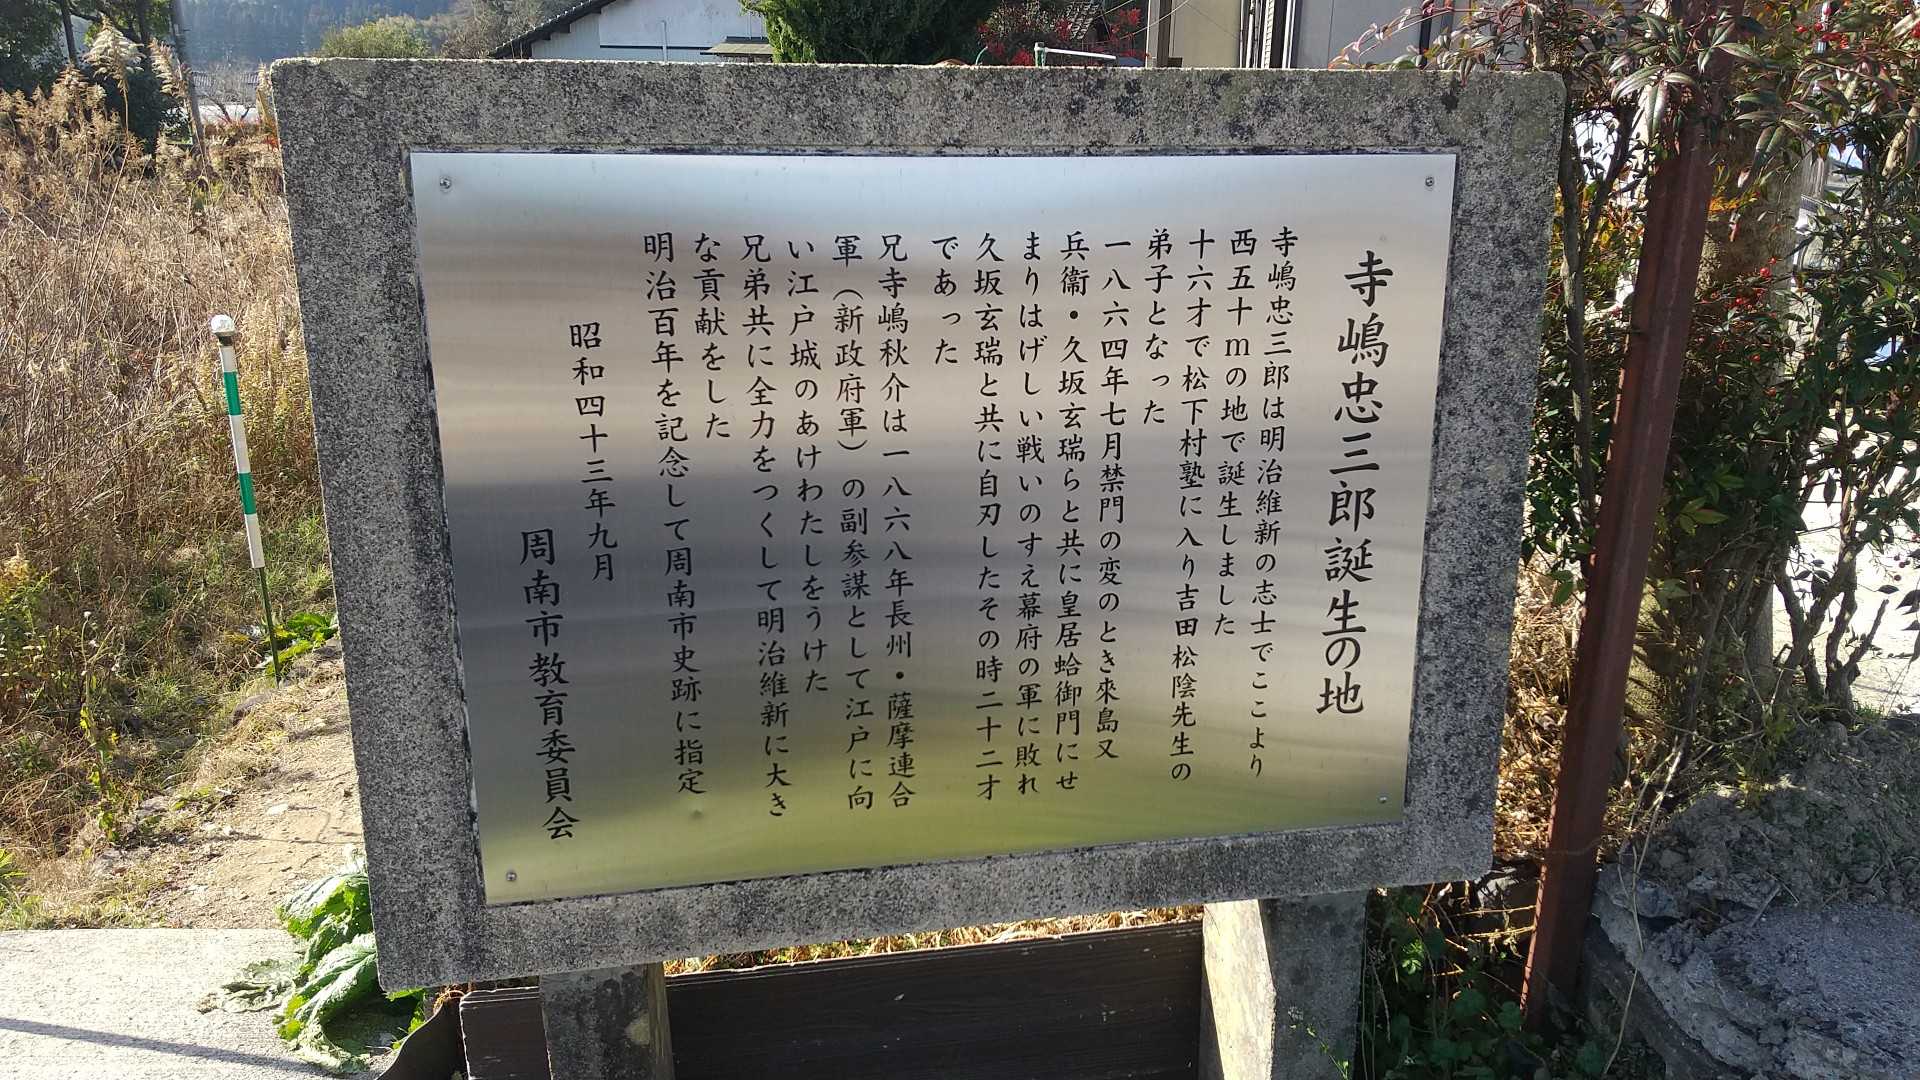 寺嶋忠三郎誕生の地
寺嶋忠三郎は明治維新の志士でここより
西五十mの地で誕生しました
十六才で松下村塾に入り吉田松陰先生の
弟子となった
一八六四年七月禁門の変のとき來島又
兵衞・久坂玄瑞らと共に皇居蛤御門にせ
まりはげしい戦いのすえ幕府の軍に敗れ
久坂玄瑞と共に自刃したその時二十二才
であった
兄寺嶋秋介は一八六八年長州・薩摩連合
軍（新政府軍）の副参謀として江戸に向
い江戸城のあけわたしをうけた
兄弟共に全力をつくして明治維新に大き
な貢献をした
明治百年を記念して周南市史跡に指定
昭和四十三年九月
周南市教育委員会